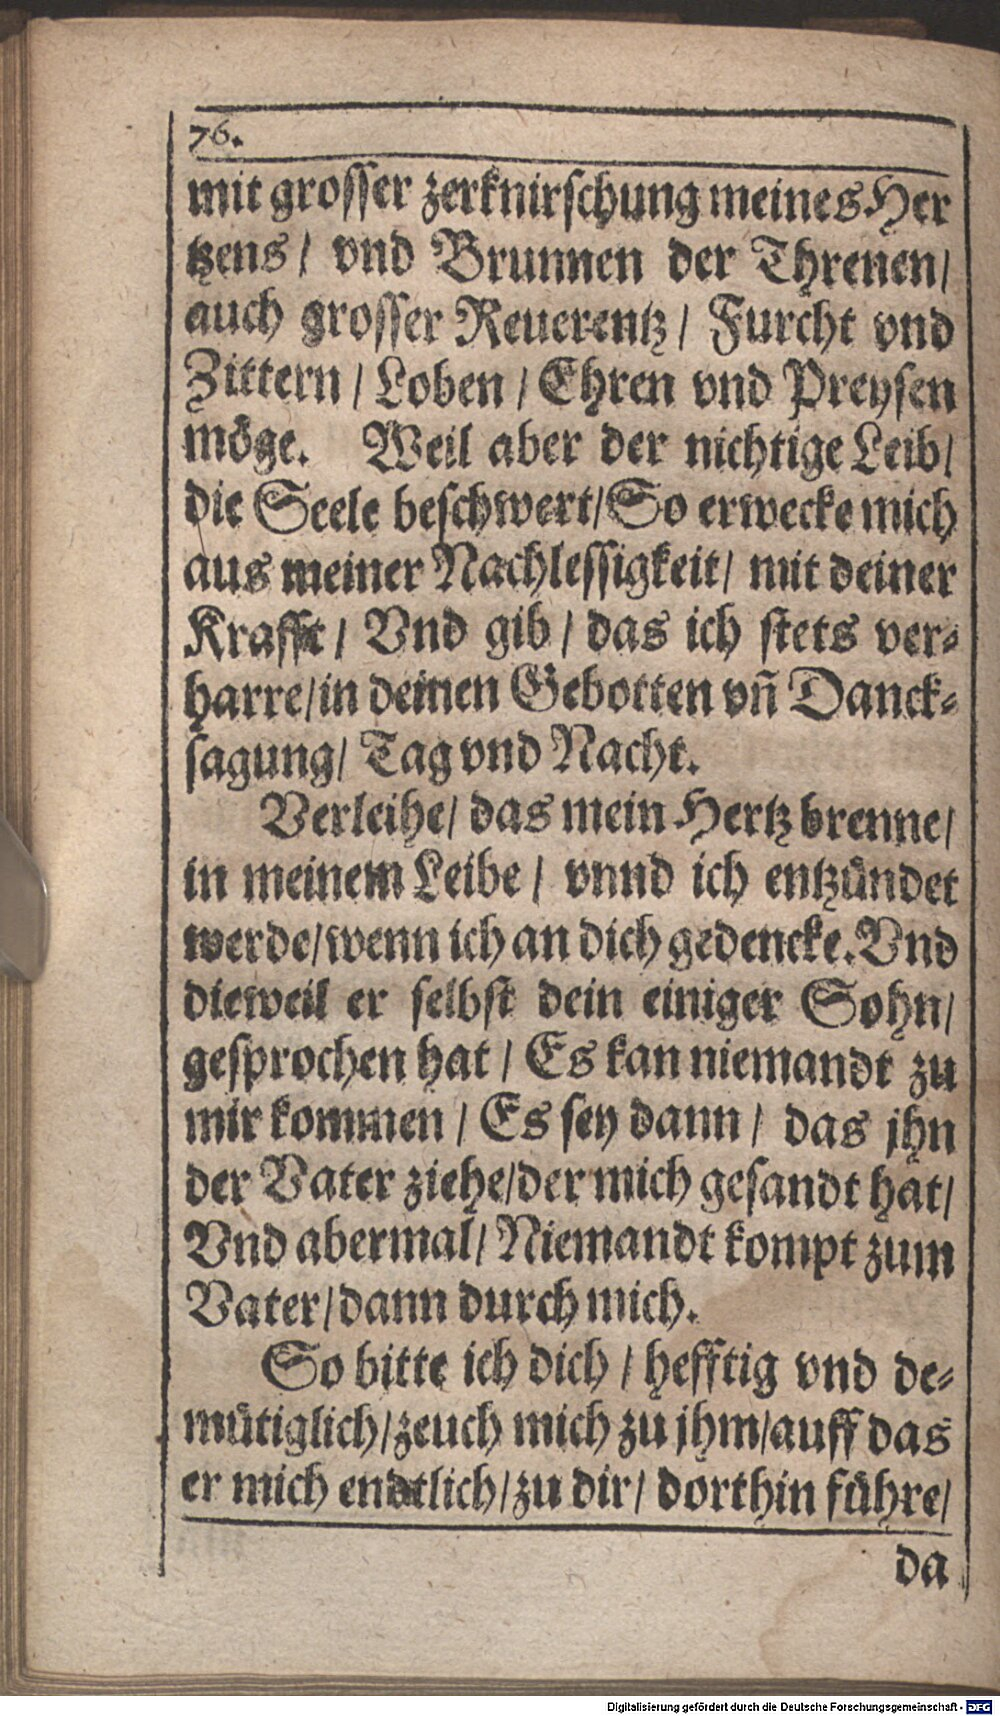 76.
mit groſſer zerknirſchung meines Her
tzens / vnd Brunnen der Threnen /
auch groſſer Reuerentz / Furcht vnd
Zittern / Loben / Ehren vnd Preyſen
möge. Weil aber der nichtige Leib /
die Seele beſchwert / So erwecke mich
aus meiner Nachleſſigkeit / mit deiner
Krafft / Vnd gib / das ich ſtets ver⸗
harre / in deinen Gebotten vñ Danck⸗
ſagung / Tag vnd Nacht.
Verleihe / das mein Hertz brenne /
in meinem Leibe / vnnd ich entzündet
werde / wenn ich an dich gedencke. Vnd
dieweil er ſelbſt dein einiger Sohn /
geſprochen hat / Es kan niemandt zu
mir kommen / Es ſey dann / das jhn
der Vater ziehe / der mich geſandt hat /
Vnd abermal / Niemandt kompt zum
Vater / dann durch mich.
So bitte ich dich / hefftig vnd de⸗
mütiglich / zeuch mich zu jhm / auff das
er mich endtlich / zu dir / dorthin führe /
da
Digitalisierung gefördert durch die Deutsche Forschungsgemeinschaft - DFG